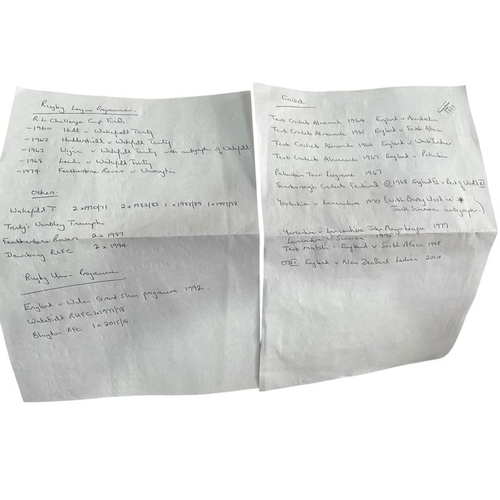 Rugby League Programmes.
R.L Challenge Cup Final
- 1960 Hull v Wakefield Trinity
- 1962 Huddersfield v Wakefield Trinity
- 1963 Wigan v Wakefield Trinity with autograph of Wakefield
- 1968 Leeds v Wakefield Trinity
- 1974 Featherstone Rovers v Warrington
Others.
Wakefield T. 2 x 1970/71 2 x 1982/83 1 x 1988/89
Trinity's Wembley Triumph
Featherstone Rovers 2 x 1987
Dewsbury RLFC 2 x 1994
Rugby Union Programme
England v Wales Grand Slam programme 1992.
Wakefield RUFC 1x1977/78
Blaydon RFC 1 x 2015/16.
Cricket
Test Cricket Almanack 1964 - England v Australia
Test Cricket Almanack 1965 - England v South Africa
Test Cricket Almanack 1966 - England v West Indies
Test Cricket Almanack 1967 - England v Pakistan
Pakistan Tour Programme 1967
Scarborough Cricket Festival 1968 England XI v Rest of World XI
Yorkshire v Lancashire 1970 (with Barry Wood +
Jack Simmons autographs)
Yorkshire v Lancashire 1979
Lancashire v Sussex
Test Match - England v South Africa 1998
ODI England v New Zealand Ladies